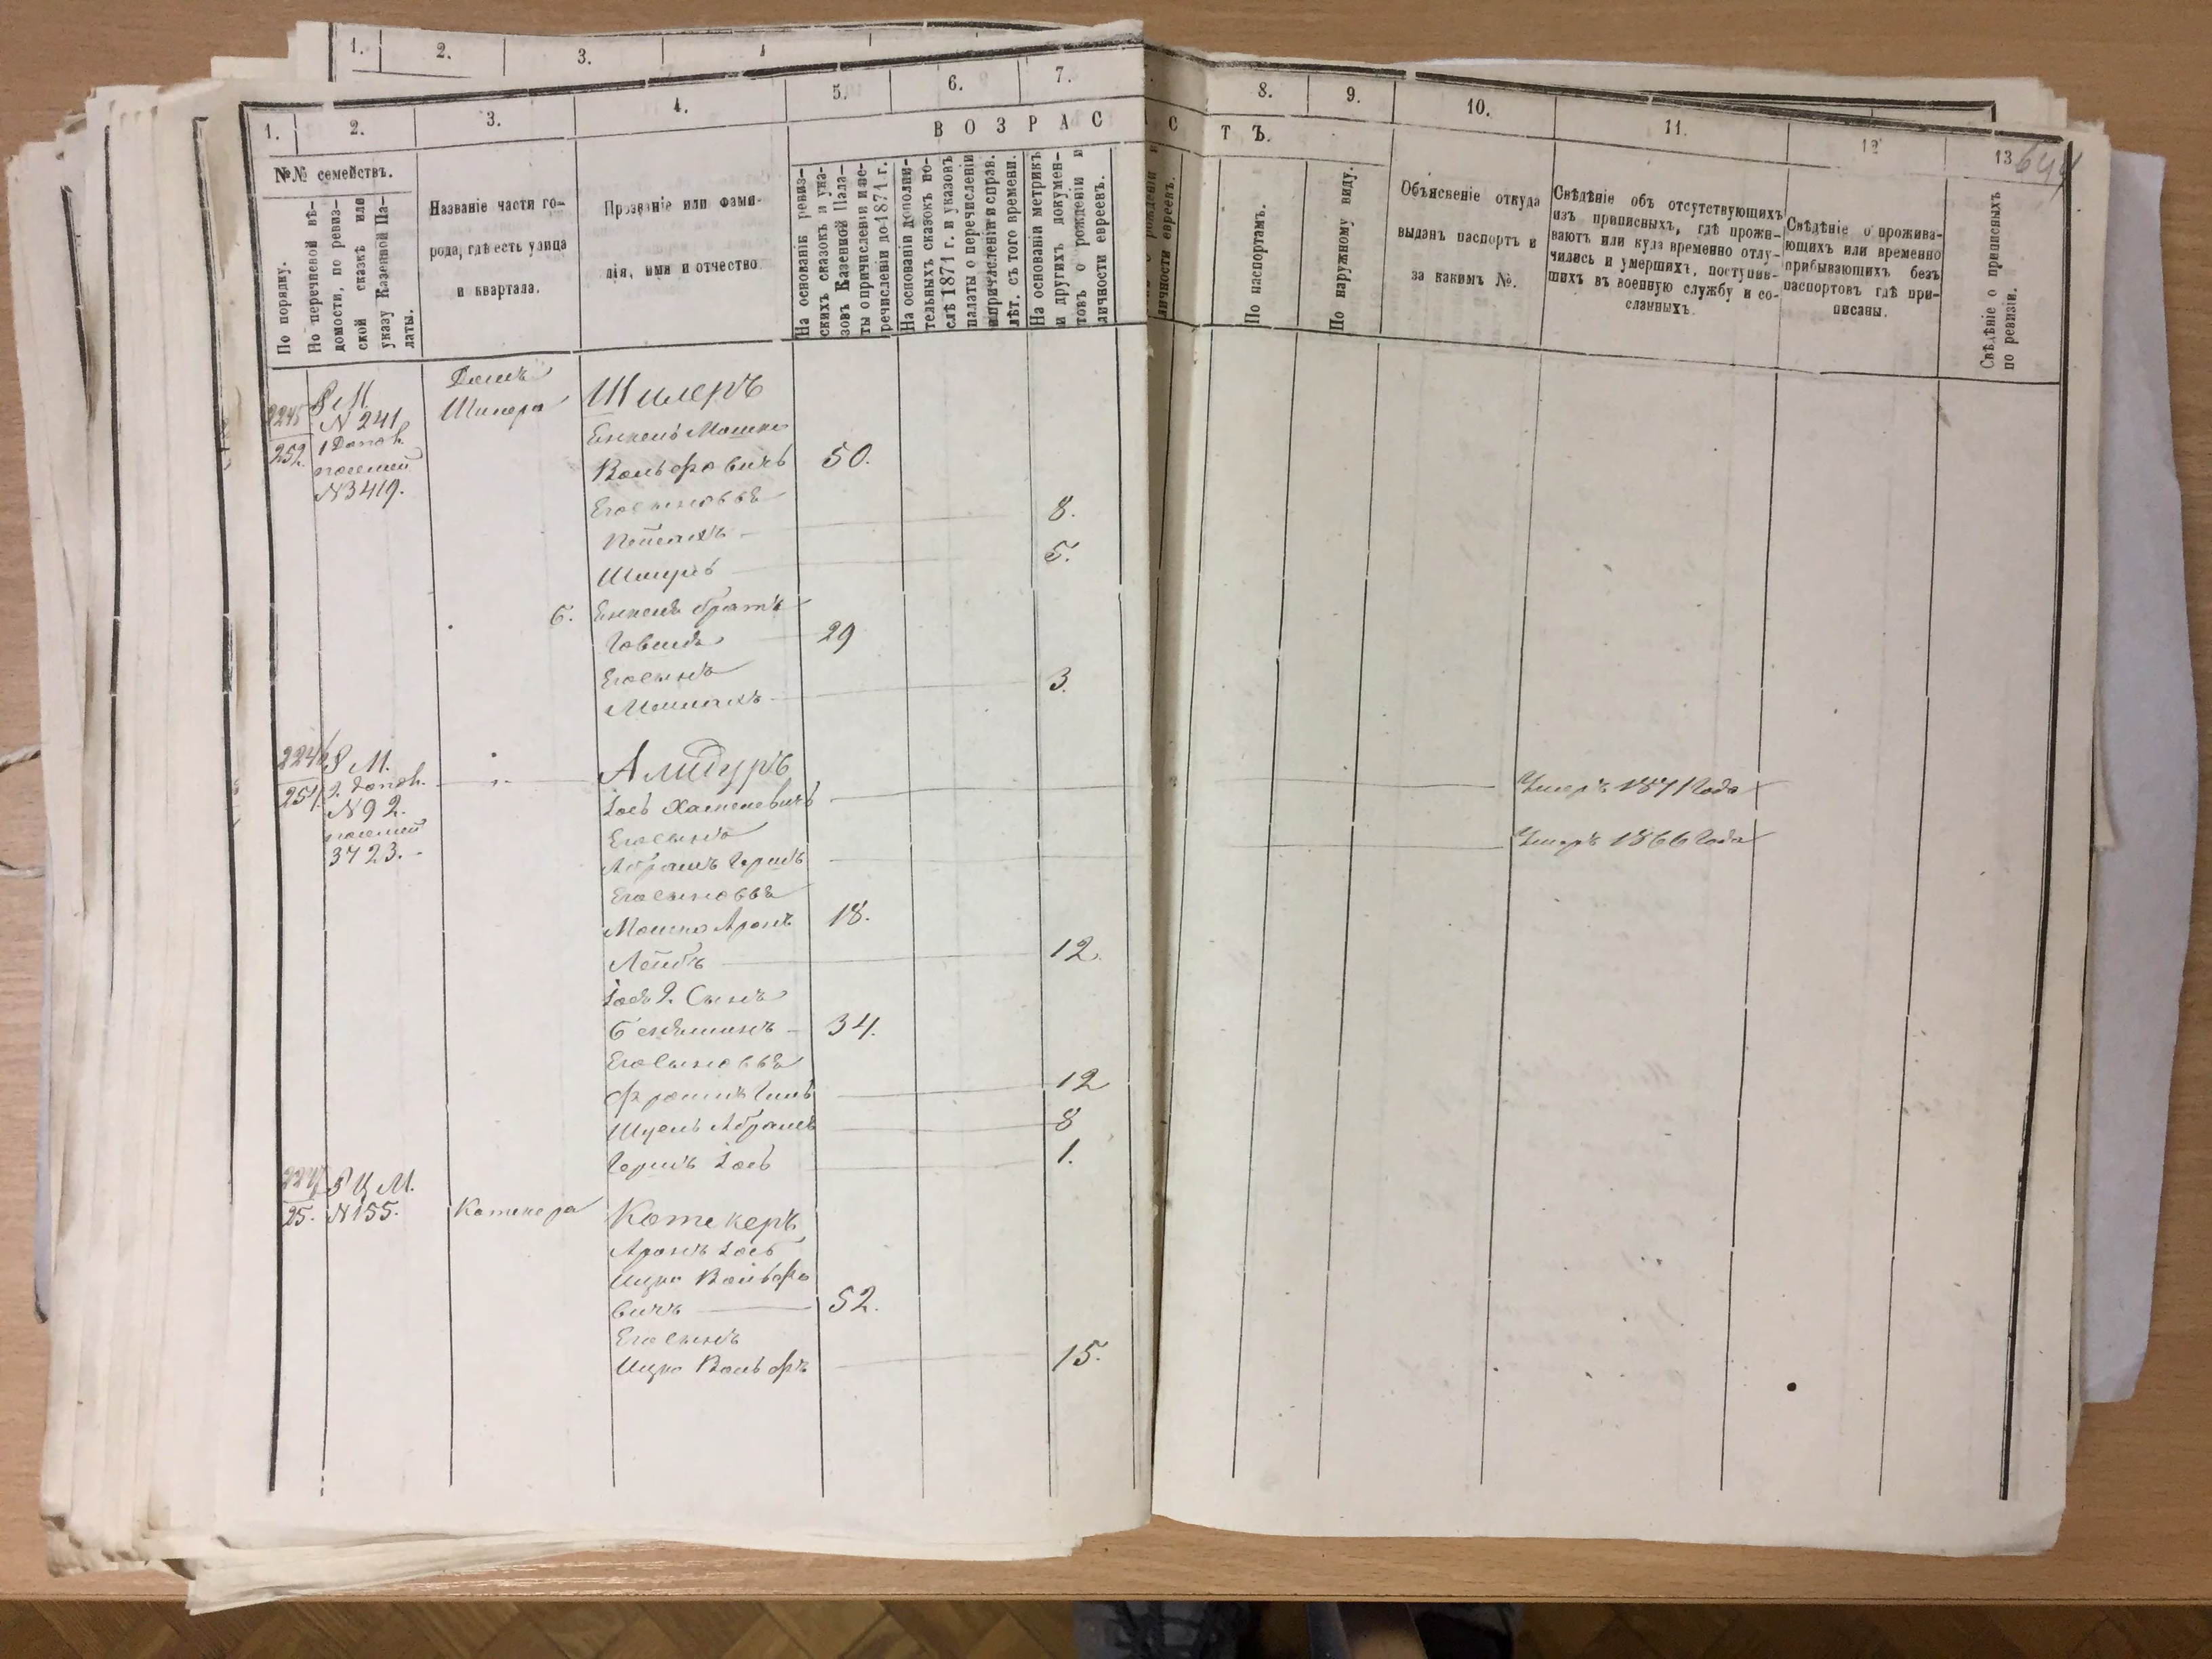 1. 2. 3.
1. 2. 3. 4. 5. 6. 7. 8. 9. 10. 11. 12 13
В О З Р А С Т Ъ.
№№ семействъ.
По порядку.
По перечневой вѣ-
домости, по ревиз-
ской сказкѣ или
указу Казенной Па-
латы.
Названіе части го-
рода, гдѣ есть улица
и квартала.
Прозваніе или фами-
лія, имя и отчество
На основаніи ревиз-
скихъ сказокъ и ука-
зовъ Казенной Пала-
ты о причислени и пе-
речислени до 1871 г.
На основаніи дополни-
тельныхъ сказокъ по-
слѣ 1871 г. и указовъ
палаты о перечислени
и причислени и справ.
лѣт. съ того времени.
На основаніи метрикъ
и другихъ докумен-
товъ о рожденіи и
личности евреевъ.
рожденіи и
личности евреевъ.
По паспортамъ.
По наружному виду.
Объясненіе откуда
выданъ паспортъ и
за какимъ №.
Свѣдѣніе объ отсутствующихъ
изъ приписныхъ, гдѣ прожи-
ваютъ или куда временно отлу-
чились и умершихъ, поступив-
шихъ въ военную службу и со-
сланныхъ.
Свѣдѣніе о прожива-
ющихъ или временно
прибывающихъ безъ
паспортовъ гдѣ при-
писаны.
Свѣдѣніе о приписныхъ
по ревизіи.
2245
252.
8 М.
N 241
N 3419.
Домъ
Шилера
Шилеръ
Енкель Мошко
Вольфовичъ 50.
Его сыновья
Пейсахъ 8.
Шмуль 5.
Б. Енкеля братъ
Говшія 29
Его сынъ
3.
2246
254
8 М.
N 92.
3723.
Алидуръ
Іось Умеръ 1871 года
Его сынъ
Абрамъ Гершъ Умеръ 1866 года
Его сыновья
Мошко Аронъ 18.
Лейбъ 12.
Іося 2. Сынъ
Беньяминъ 34.
Его сыновья
12
Шуель Абрамъ 8
Гершъ Іось 1.
2247
25.
8 Ц М.
N 155.
Котекера
Котекеръ
Аронъ Іось
Ицко Вольфо
вичъ 52.
Его сынъ
Ицко Вольфъ 15.